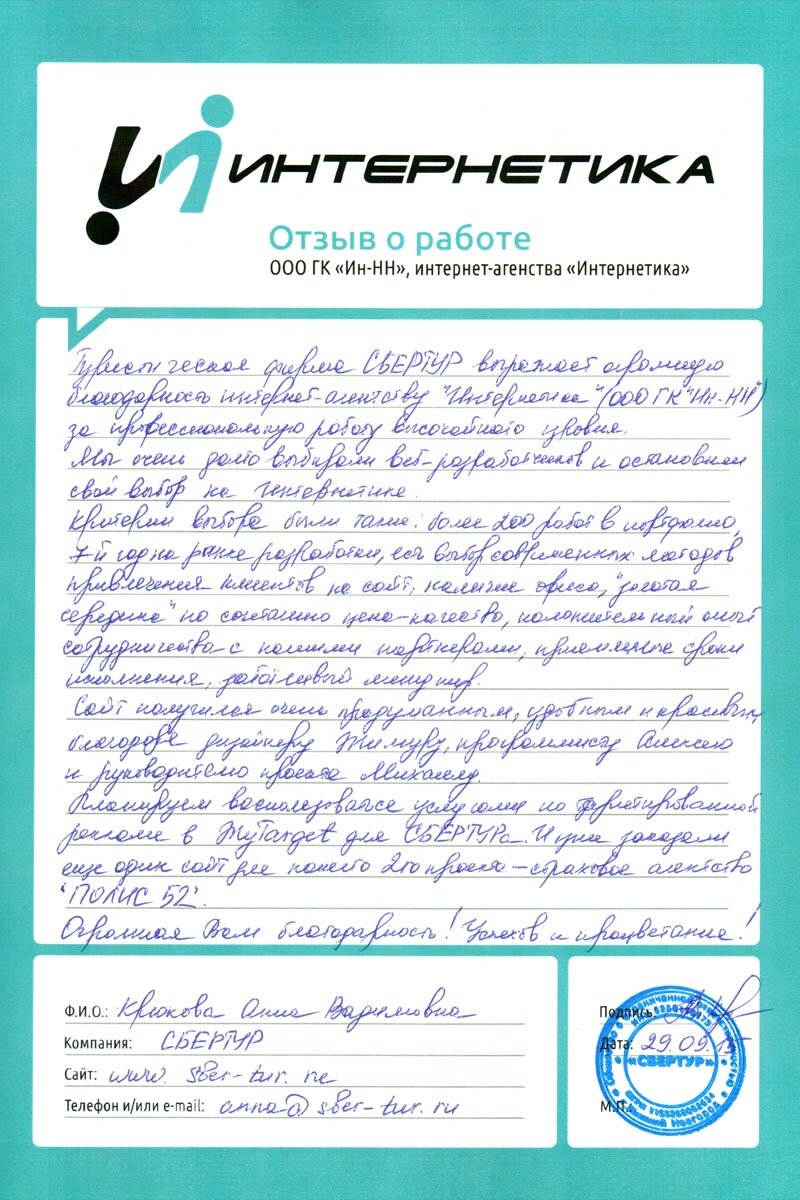 ИНТЕРНЕТИКА
Отзыв о работе
ООО ГК «Ин-НН», интернет-агенства «Интернетика»
Туристическая фирма СБЕРТУР выражает огромную
благодарность интернет-агентству "Интернетика" (ООО ГК "Ин-НН")
за профессиональную работу высочайшего уровня.
Мы очень долго выбирали веб-разработчиков и остановили
свой выбор на Интернетике.
Критерии выбора были такие: более 200 работ в портфолио,
7-й год на рынке разработки, есть выбор современных методов
привлечения клиентов на сайт, наличие офиса, "золотая
середина" по сочетанию цена-качество, положительный опыт
сотрудничества с нашими партнерами, приемлемые сроки
исполнения, заботливый менеджер.
Сайт получился очень продуманным, удобным и красивым,
благодаря дизайнеру Тимуру, программисту Алексею
и руководителю проекта Михаилу.
Планируем воспользоваться услугами по таргетированной
рекламе в MyTarget для СБЕРТУРа. И уже заказали
еще один сайт для нашего 2го проекта - страховое агентство
"ПОЛИС 52".
Огромная Вам благодарность! Успехов и процветания!
Ф.И.О.: Крюкова Анна Вадимовна
Компания: СБЕРТУР
Сайт: www. sber-tur. ru
Телефон и/или e-mail: anna@sber-tur.ru
Подпись:
Дата: 29.09.15
М.П.
«СБЕРТУР»
Общество с ограниченной ответственностью
Нижний Новгород